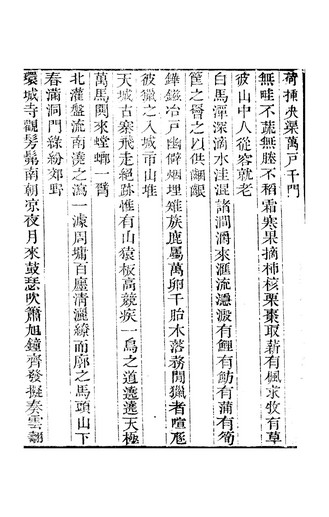 荷插決渠萬戸千門
無畦不蔬無塍不稻霜寒果摘柿核栗棗取薪有楓求牧有草
彼山中人從容就老
白馬潭深滴水洼混諸澗潏來滙流瀍澓有鯉有魴有蒲有筍
筐之罾之以供
鏵鎡冶戸幽僻烟埋雉族鹿屬萬卵千胎木落務閒獵者喧豗
彼獵之入城市山堆
天城古寨飛走絕跡惟有山猿板高競疾一爲之道蕘蕘天極
萬馬閧來螳螂一臂
北灌盤流南澆之瀉一濠周墉百廛清灑繚而廓之馬頭山下
春滿洞門綠紛郊野
環城寺觀髣髴南朝凉夜月來鼓瑟吹簫旭鐘齊發擬奏雲翹